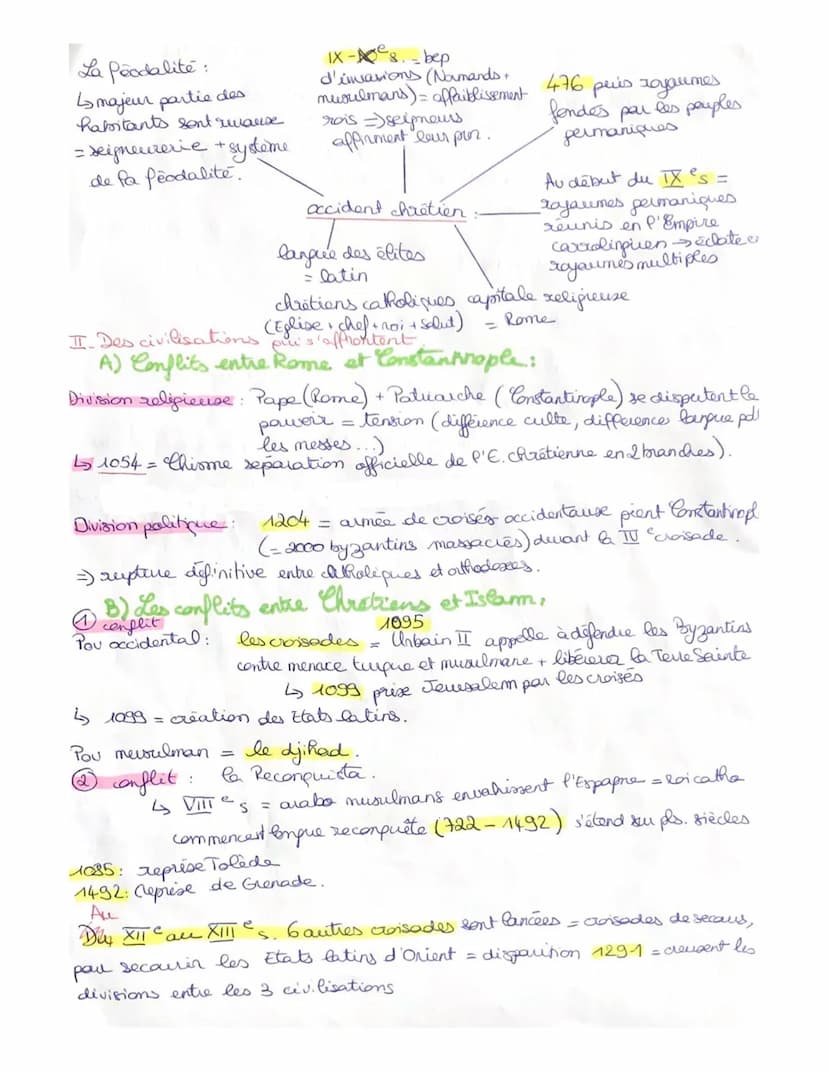 La féodalité :
↳ majeur partie des
habitants sont ruraux
= seigneurerie + système
de la féodalité.
IX - Xe s. = bep
d'invasions (Normands +
musulmans) = affaiblissement
rois => seigneurs
affirment leur pvr.
476 puis royaumes
fondés par les peuples
germaniques
Au début du IXe s =
royaumes germaniques
réunis en l'Empire
carrolingien → éclate
royaumes multiples
occident chrétien :
langue des élites
= latin
chrétiens catholiques capitale religieuse
(Eglise + chef + roi + salut) = Rome
II - Des civilisations qui s'affrontent
A) Conflits entre Rome et Constantinople :
Division religieuse : Pape (Rome) + Patriarche (Constantinople) se disputent le
pouvoir = tension (différence culte, différences langue pdt
les messes...)
↳ 1054 = Chisme séparation officielle de l'E. chrétienne en 2 branches).
Division politique : 1204 = armée de croisés occidentaux pient Constantinopl
(= 2000 byzantins massacrés) durant la IVe croisade.
=> rupture définitive entre catholiques et orthodoxes.
B) Les conflits entre Chrétiens et Islam :
① conflit
Pou occidental : les croisades = 1095 Urbain II appelle à défendre les Byzantins
contre menace turque et musulmane + libérer la Terre Sainte
↳ 1099 prise Jerusalem par les croisés
↳ 1099 = création des Etats latins.
Pou musulman = le djihad.
② conflit : la Reconquista.
↳ VIIIe s = arabo musulmans envahissent l'Espagne = roi catho
commencent longue reconquête (722 - 1492) s'étend sur pls. siècles
1085 : reprise Tolède
1492 : reprise de Grenade.
Au
Du XIIe au XIIIe s. 6 autres croisades sont lancées = croisades de secours,
pour secourir les Etats latins d'Orient = disparition 1291 = creusent les
divisions entre les 3 civilisations